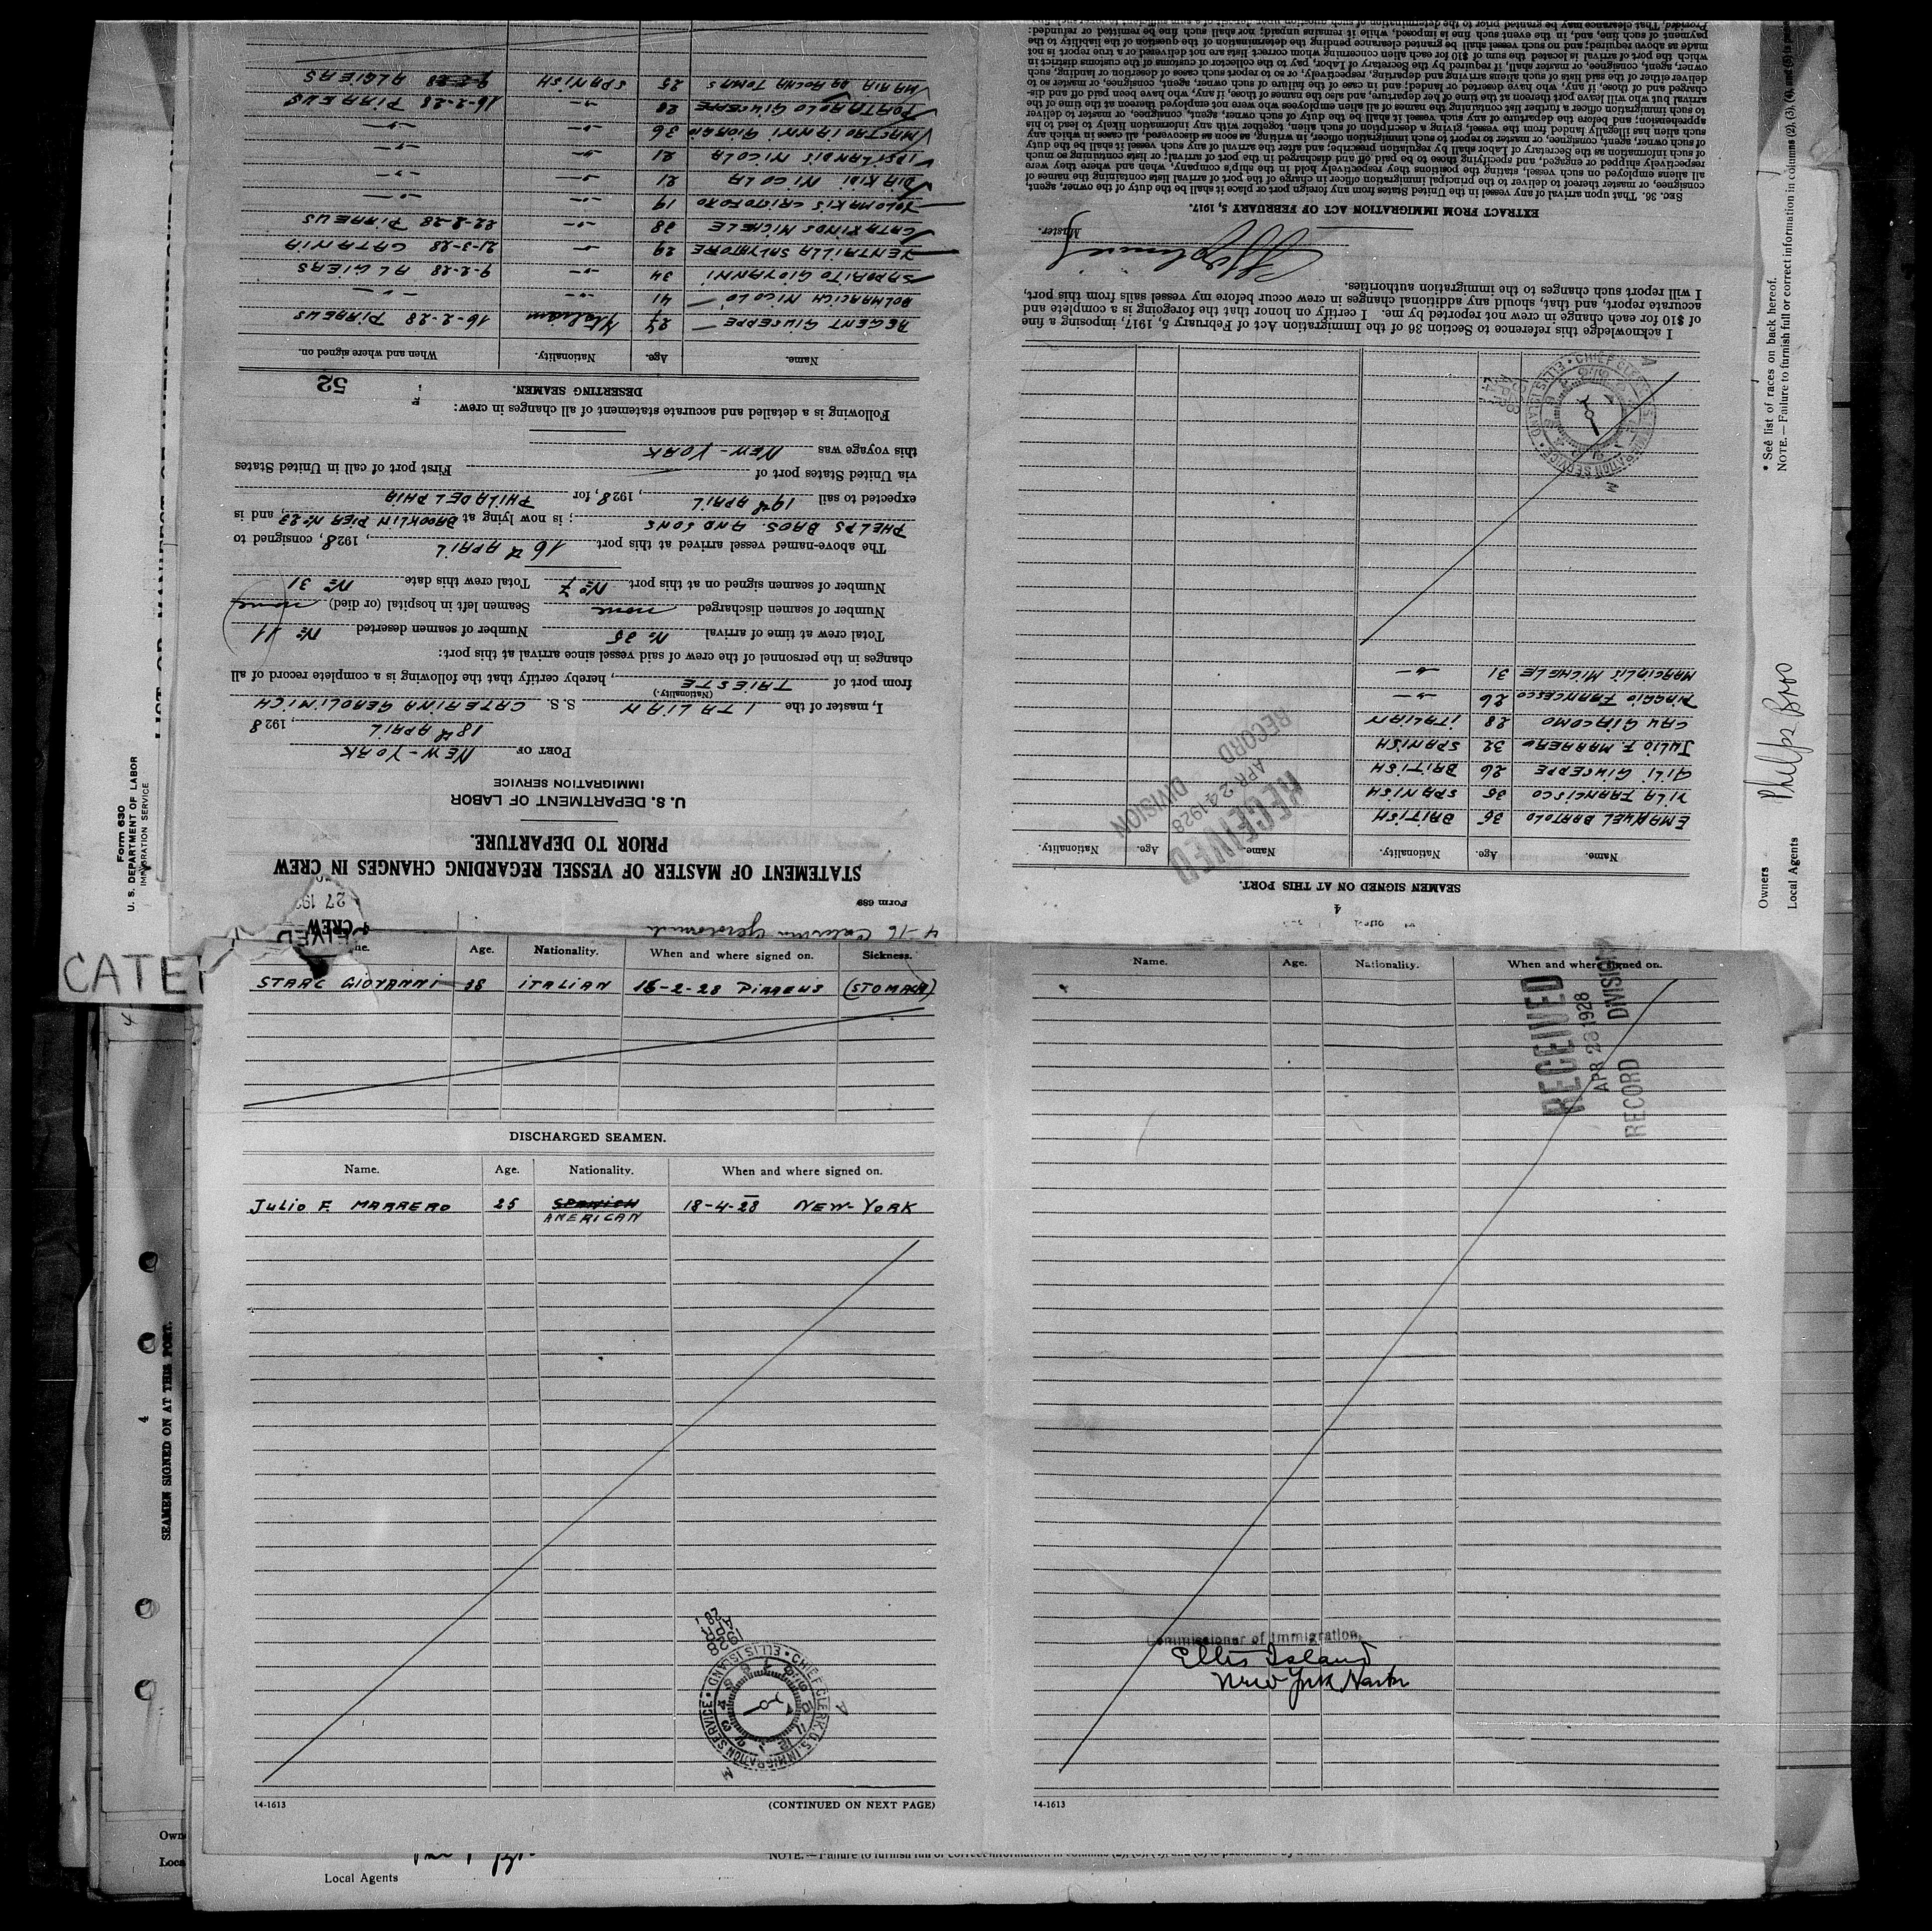 Form 689
STATEMENT OF MASTER OF VESSEL REGARDING CHANGES IN CREW
PRIOR TO DEPARTURE.
U. S. DEPARTMENT OF LABOR
IMMIGRATION SERVICE
PORT OF NEW-YORK
18th APRIL, 1928
I, master of the ITALIAN S. S. CATERINA GEROLIMICH
(Nationality.)
from port of TRIESTE, hereby certify that the following is a complete record of all
changes in the personnel of the crew of said vessel since arrival at this port:
Total crew at time of arrival No 35 Number of seamen deserted No 11
Number of seamen discharged none Seamen left in hospital (or died) none
Number of seamen signed on at this port No 7 Total crew this date No 31
The above-named vessel arrived at this port 16th APRIL, 1928, consigned to
PHELPS BROS. AND SONS; is now lying at BROOKLIN PIER No 23, and is
expected to sail 19th APRIL, 1928, for PHILADELPHIA
via United States port of — First port of call in United States
this voyage was NEW-YORK
Following is a detailed and accurate statement of all changes in crew:
DESERTING SEAMEN.
52
Name. Age. Nationality. When and where signed on.
REGENT GIUSEPPE 27 Italian 16-2-28 PIRAEUS
DOLMACICH NICOLO 41 -"- -"-
SAPORITO GIOVANNI 34 -"- 9-2-28 ALGIERS
VENTRILLA SALVATORE 29 -"- 21-3-28 CATANIA
CATAXINOS MICHELE 38 -"- 22-2-28 PIRAEUS
TOLOMAKIS CRISTOFORO 19 -"-
DIAKIDI NICOLA 21 -"- -"-
IPSILANDIS NICOLA 21 -"- -"-
MASTROIANNI GIORGIO 36 -"- -"-
PORTAROLO GIUSEPPE 20 -"- 16-2-28 PIRAEUS
MARIA DA ROCHA TOMAS 25 SPANISH 9-2-28 ALGIERS
4
SEAMEN SIGNED ON AT THIS PORT.
Name. Age. Nationality. Name. Age. Nationality.
EMANUEL BARTOLO 36 BRITISH
VILA FRANCISCO 35 SPANISH
GILI GIUSEPPE 26 BRITISH
JULIO F. MARRERO 32 SPANISH
CAU GIACOMO 28 ITALIAN
MAGGIO FRANCESCO 26 -"-
MARGINLIS MICHELE 31 -"-
RECEIVED
APR 24 1928
RECORD DIVISION
CHIEF CLERK U.S. IMMIGRATION SERVICE • ELLIS ISLAND
I acknowledge this reference to Section 36 of the Immigration Act of February 5, 1917, imposing a fine
of $10 for each change in crew not reported by me. I certify on honor that the foregoing is a complete and
accurate report, and that, should any additional changes in crew occur before my vessel sails from this port,
I will report such changes to the immigration authorities.
Master.
EXTRACT FROM IMMIGRATION ACT OF FEBRUARY 5, 1917.
SEC. 36. That upon arrival of any vessel in the United States from any foreign port or place it shall be the duty of the owner, agent,
consignee, or master thereof to deliver to the principal immigration officer in charge of the port of arrival lists containing the names of
all aliens employed on such vessel, stating the positions they respectively hold in the ship's company, when and where they were
respectively shipped or engaged, and specifying those to be paid off and discharged in the port of arrival; or lists containing so much
of such information as the Secretary of Labor shall by regulation prescribe; and after the arrival of any such vessel it shall be the duty
of such owner, agent, consignee, or master to report to such immigration officer, in writing, as soon as discovered, all cases in which any
such alien has illegally landed from the vessel, giving a description of such alien, together with any information likely to lead to his
apprehension; and before the departure of any such vessel it shall be the duty of such owner, agent, consignee, or master to deliver
to such immigration officer a further list containing the names of all alien employees who were not employed thereon at the time of the
arrival but who will leave port thereon at the time of her departure, and also the names of those, if any, who have been paid off and dis-
charged and of those, if any, who have deserted or landed; and in case of the failure of such owner, agent, consignee, or master to
deliver either of the said lists of such aliens arriving and departing, respectively, or so to report such cases of desertion or landing, such
owner, agent, consignee, or master shall, if required by the Secretary of Labor, pay to the collector of customs of the customs district in
which the port of arrival is located the sum of $10 for each alien concerning whom correct lists are not delivered or a true report is not
made as above required; and no such vessel shall be granted clearance pending the determination of the question of the liability to the
payment of such fine, and, in the event such fine is imposed, while it remains unpaid; nor shall such fine be remitted or refunded:
Form 630
U. S. DEPARTMENT OF LABOR
IMMIGRATION SERVICE
Owners
Local Agents
Phelps Bros
* See list of races on back hereof.
NOTE.—Failure to furnish full or correct information in columns (2), (3),
CREW
Age. Nationality. When and where signed on. Sickness.
STARC GIOVANNI 38 ITALIAN 16-2-28 PIRAEUS (STOMACH)
DISCHARGED SEAMEN.
Name. Age. Nationality. When and where signed on.
JULIO F. MARRERO 25 SPANISH 18-4-28 NEW-YORK
AMERICAN
CHIEF CLERK U.S. IMMIGRATION SERVICE • ELLIS ISLAND
14-1613 (CONTINUED ON NEXT PAGE)
Name. Age. Nationality. When and where signed on.
RECEIVED
APR 28 1928
RECORD DIVISION
Commissioner of Immigration,
Ellis Island
New York Harbor
14-1613
4
SEAMEN SIGNED ON AT THIS PORT.
Local Agents